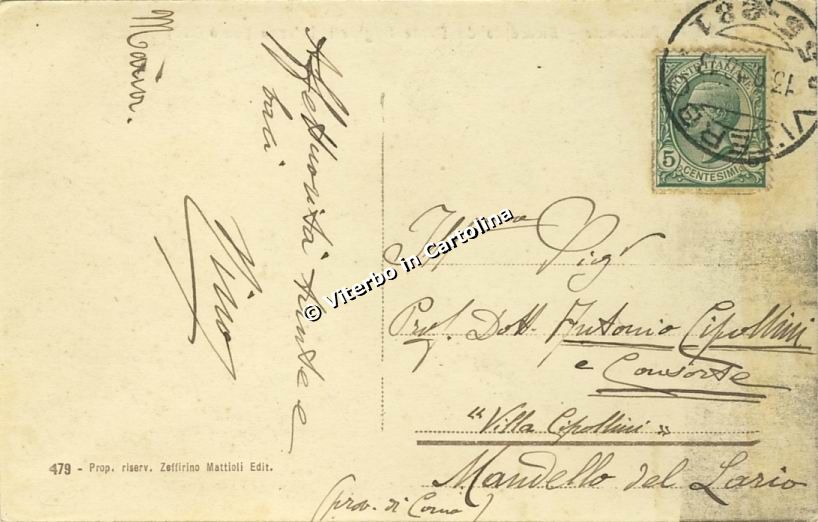 Maria.
Affettuosità tante e
baci
Nino
POSTE ITALIANE
5
CENTESIMI
VITERBO
© Viterbo in Cartolina
Ill.mo Sig.
Prof. Dott. Antonio Cipollini
e Consorte
"Villa Cipollini"
Mandello del Lario
(prov. di Como)
479 - Prop. riserv. Zeffirino Mattioli Edit.